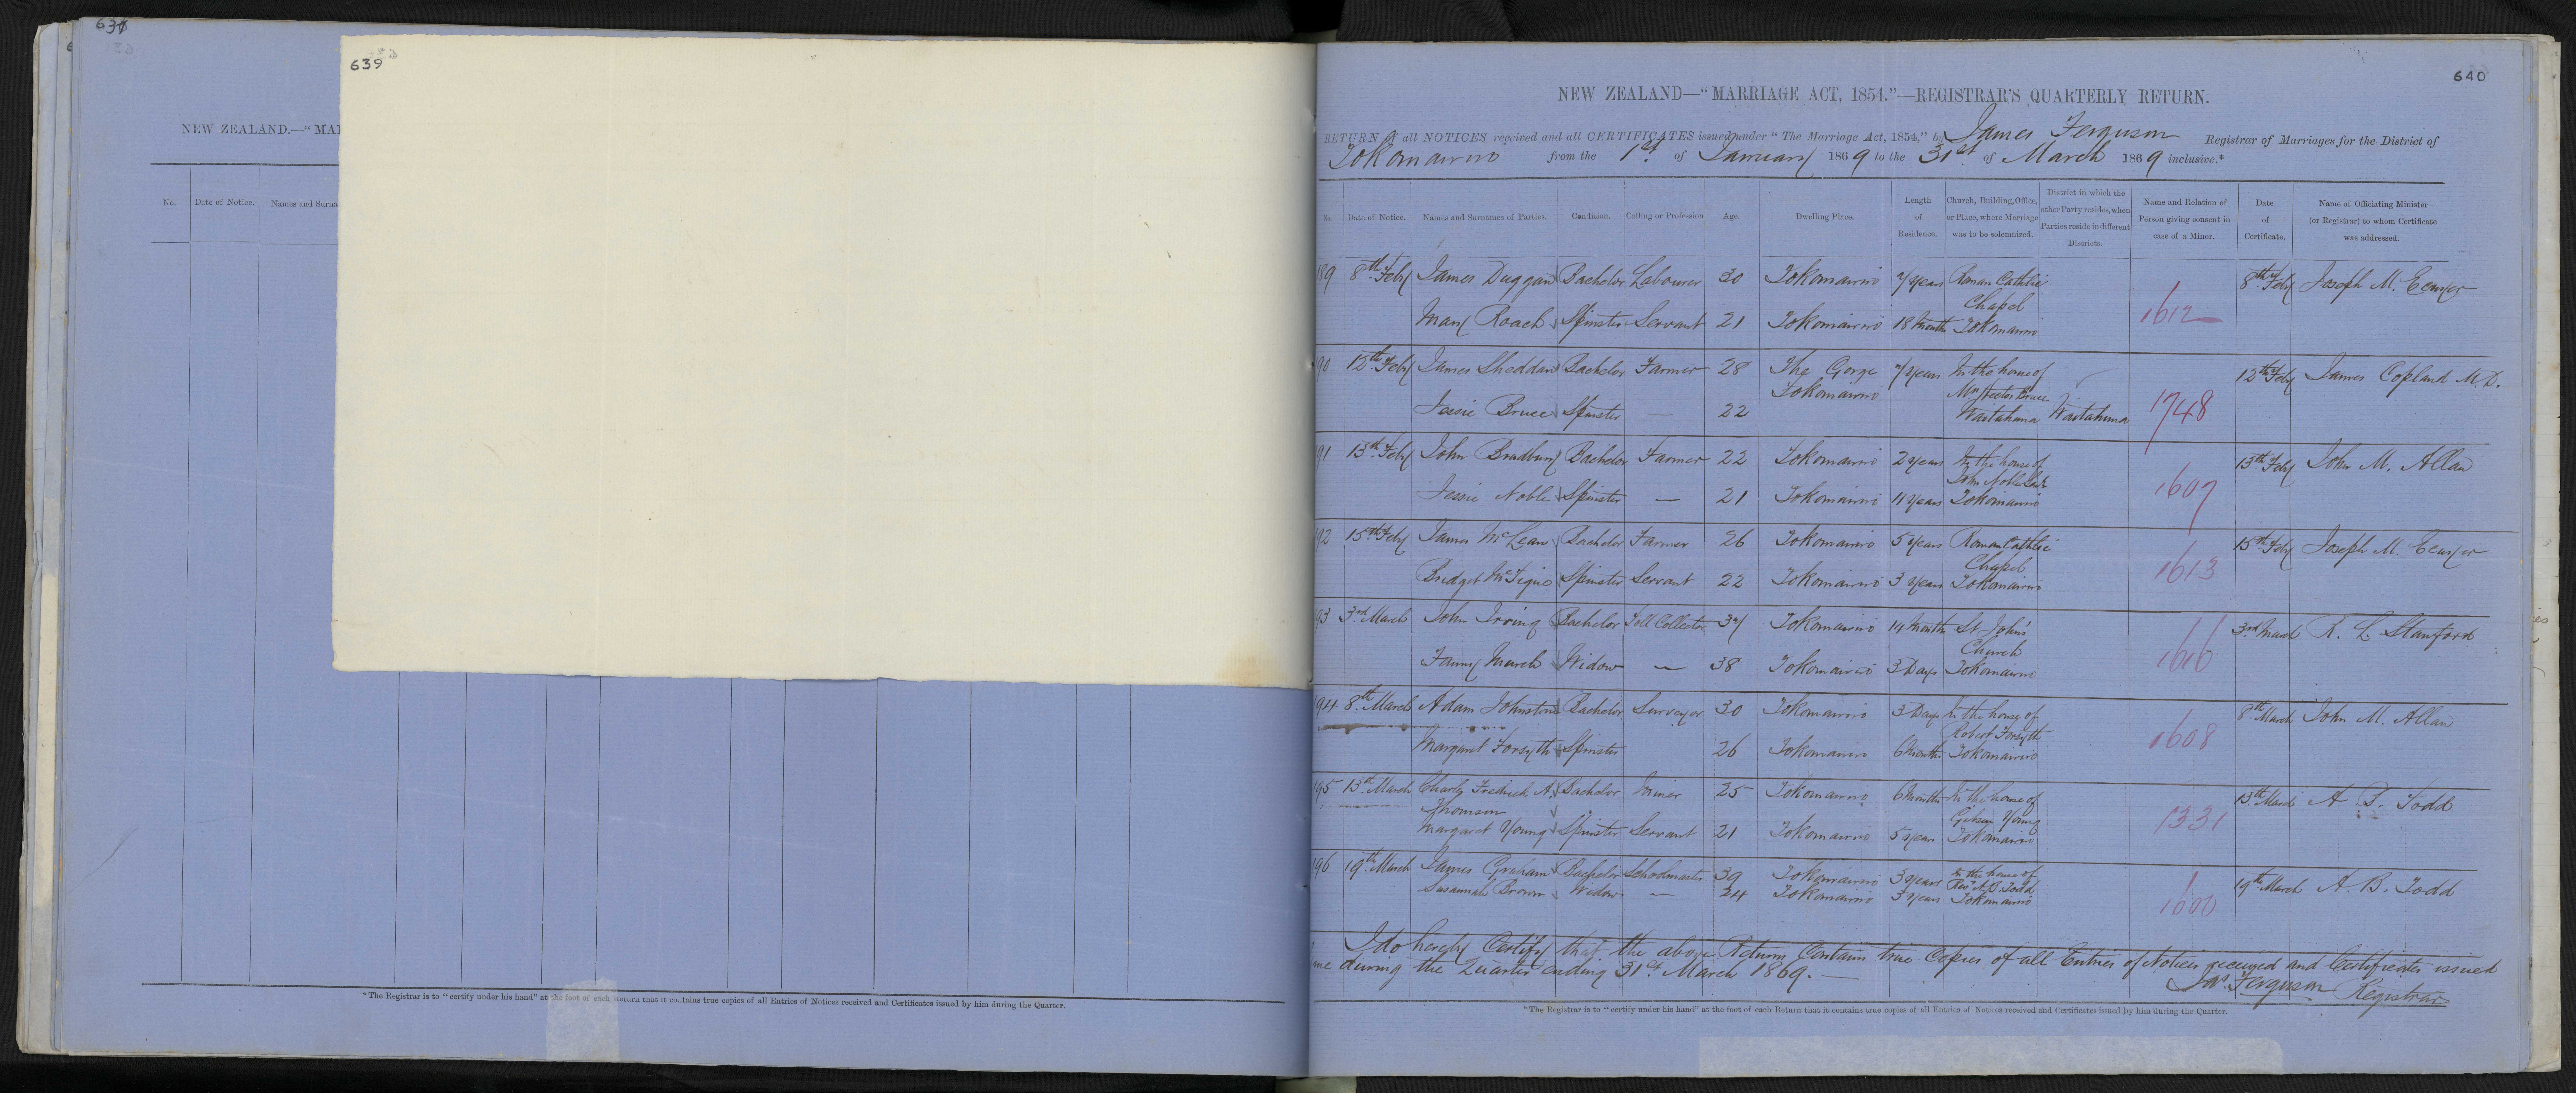 637
639
NEW ZEALAND.—“MA
No. Date of Notice. Names and Surna
*The Registrar is to “certify under his hand” at the foot of each Return that it contains true copies of all Entries of Notices received and Certificates issued by him during the Quarter.
640
NEW ZEALAND—“MARRIAGE ACT, 1854.”—REGISTRAR'S QUARTERLY RETURN.
RETURN of all NOTICES received and all CERTIFICATES issued under “The Marriage Act, 1854,” by James Ferguson Registrar of Marriages for the District of
Tokomairiro from the 1st of January 1869 to the 31st of March 1869 inclusive.*
No. Date of Notice. Names and Surnames of Parties. Condition. Calling or Profession Age. Dwelling Place. Length of Residence. Church, Building, Office, or Place, where Marriage was to be solemnized. District in which the other Party resides, when Parties reside in different Districts. Name and Relation of Person giving consent in case of a Minor. Date of Certificate. Name of Officiating Minister (or Registrar) to whom Certificate was addressed.
189 8th Feby James Duggan Bachelor Labourer 30 Tokomairiro 7 years Roman Catholic 8th Feby Joseph M.
Chapel
Mary Roach Spinster Servant 21 Tokomairiro 18 Months Tokomairiro 1612
190 12th Feby James Sheddan Bachelor Farmer 28 The Gorge 7 years In the house of 12th Feby James Copland M.D.
Tokomairiro Mr Hector Bruce
Jessie Bruce Spinster — 22 Waitahuna Waitahuna 1748
191 13th Feby John Bradbury Bachelor Farmer 22 Tokomairiro 2 years In the house of 13th Feby John M. Allan
John Noble
Jessie Noble Spinster — 21 Tokomairiro 11 years Tokomairiro 1607
192 15th Feby James McLean Bachelor Farmer 26 Tokomairiro 5 years Roman Catholic 15th Feby Joseph M.
Chapel
Bridget McTigue Spinster Servant 22 Tokomairiro 3 years Tokomairiro 1613
193 3rd March John Irving Bachelor Toll Collector 37 Tokomairiro 14 Months St. John's 3rd March R. L. Stanford
Church
Fanny March Widow — 38 Tokomairiro 3 Days Tokomairiro 1616
194 8th March Adam Johnston Bachelor Surveyor 30 Tokomairiro 3 Days In the house of 8th March John M. Allan
Robert Forsyth
Margaret Forsyth Spinster 26 Tokomairiro 6 Months Tokomairiro 1608
195 13th March Charles Fredrick A. Bachelor 25 Tokomairiro 6 Months In the house of 13th March A. B. Todd
Thomson Gibson Young
Margaret Young Spinster Servant 21 Tokomairiro 5 years Tokomairiro 1331
196 19th March James Graham Bachelor Schoolmaster 39 Tokomairiro 3 years In the house of 19th March A. B. Todd
Revd A. B. Todd
Susannah Brown Widow — 24 Tokomairiro 3 years Tokomairiro 1600
I do hereby Certify that the above Return Contains true Copies of all Entries of Notices received and Certificates issued
me during the Quarter ending 31st March 1869. —
Jas. Ferguson Registrar
*The Registrar is to “certify under his hand” at the foot of each Return that it contains true copies of all Entries of Notices received and Certificates issued by him during the Quarter.